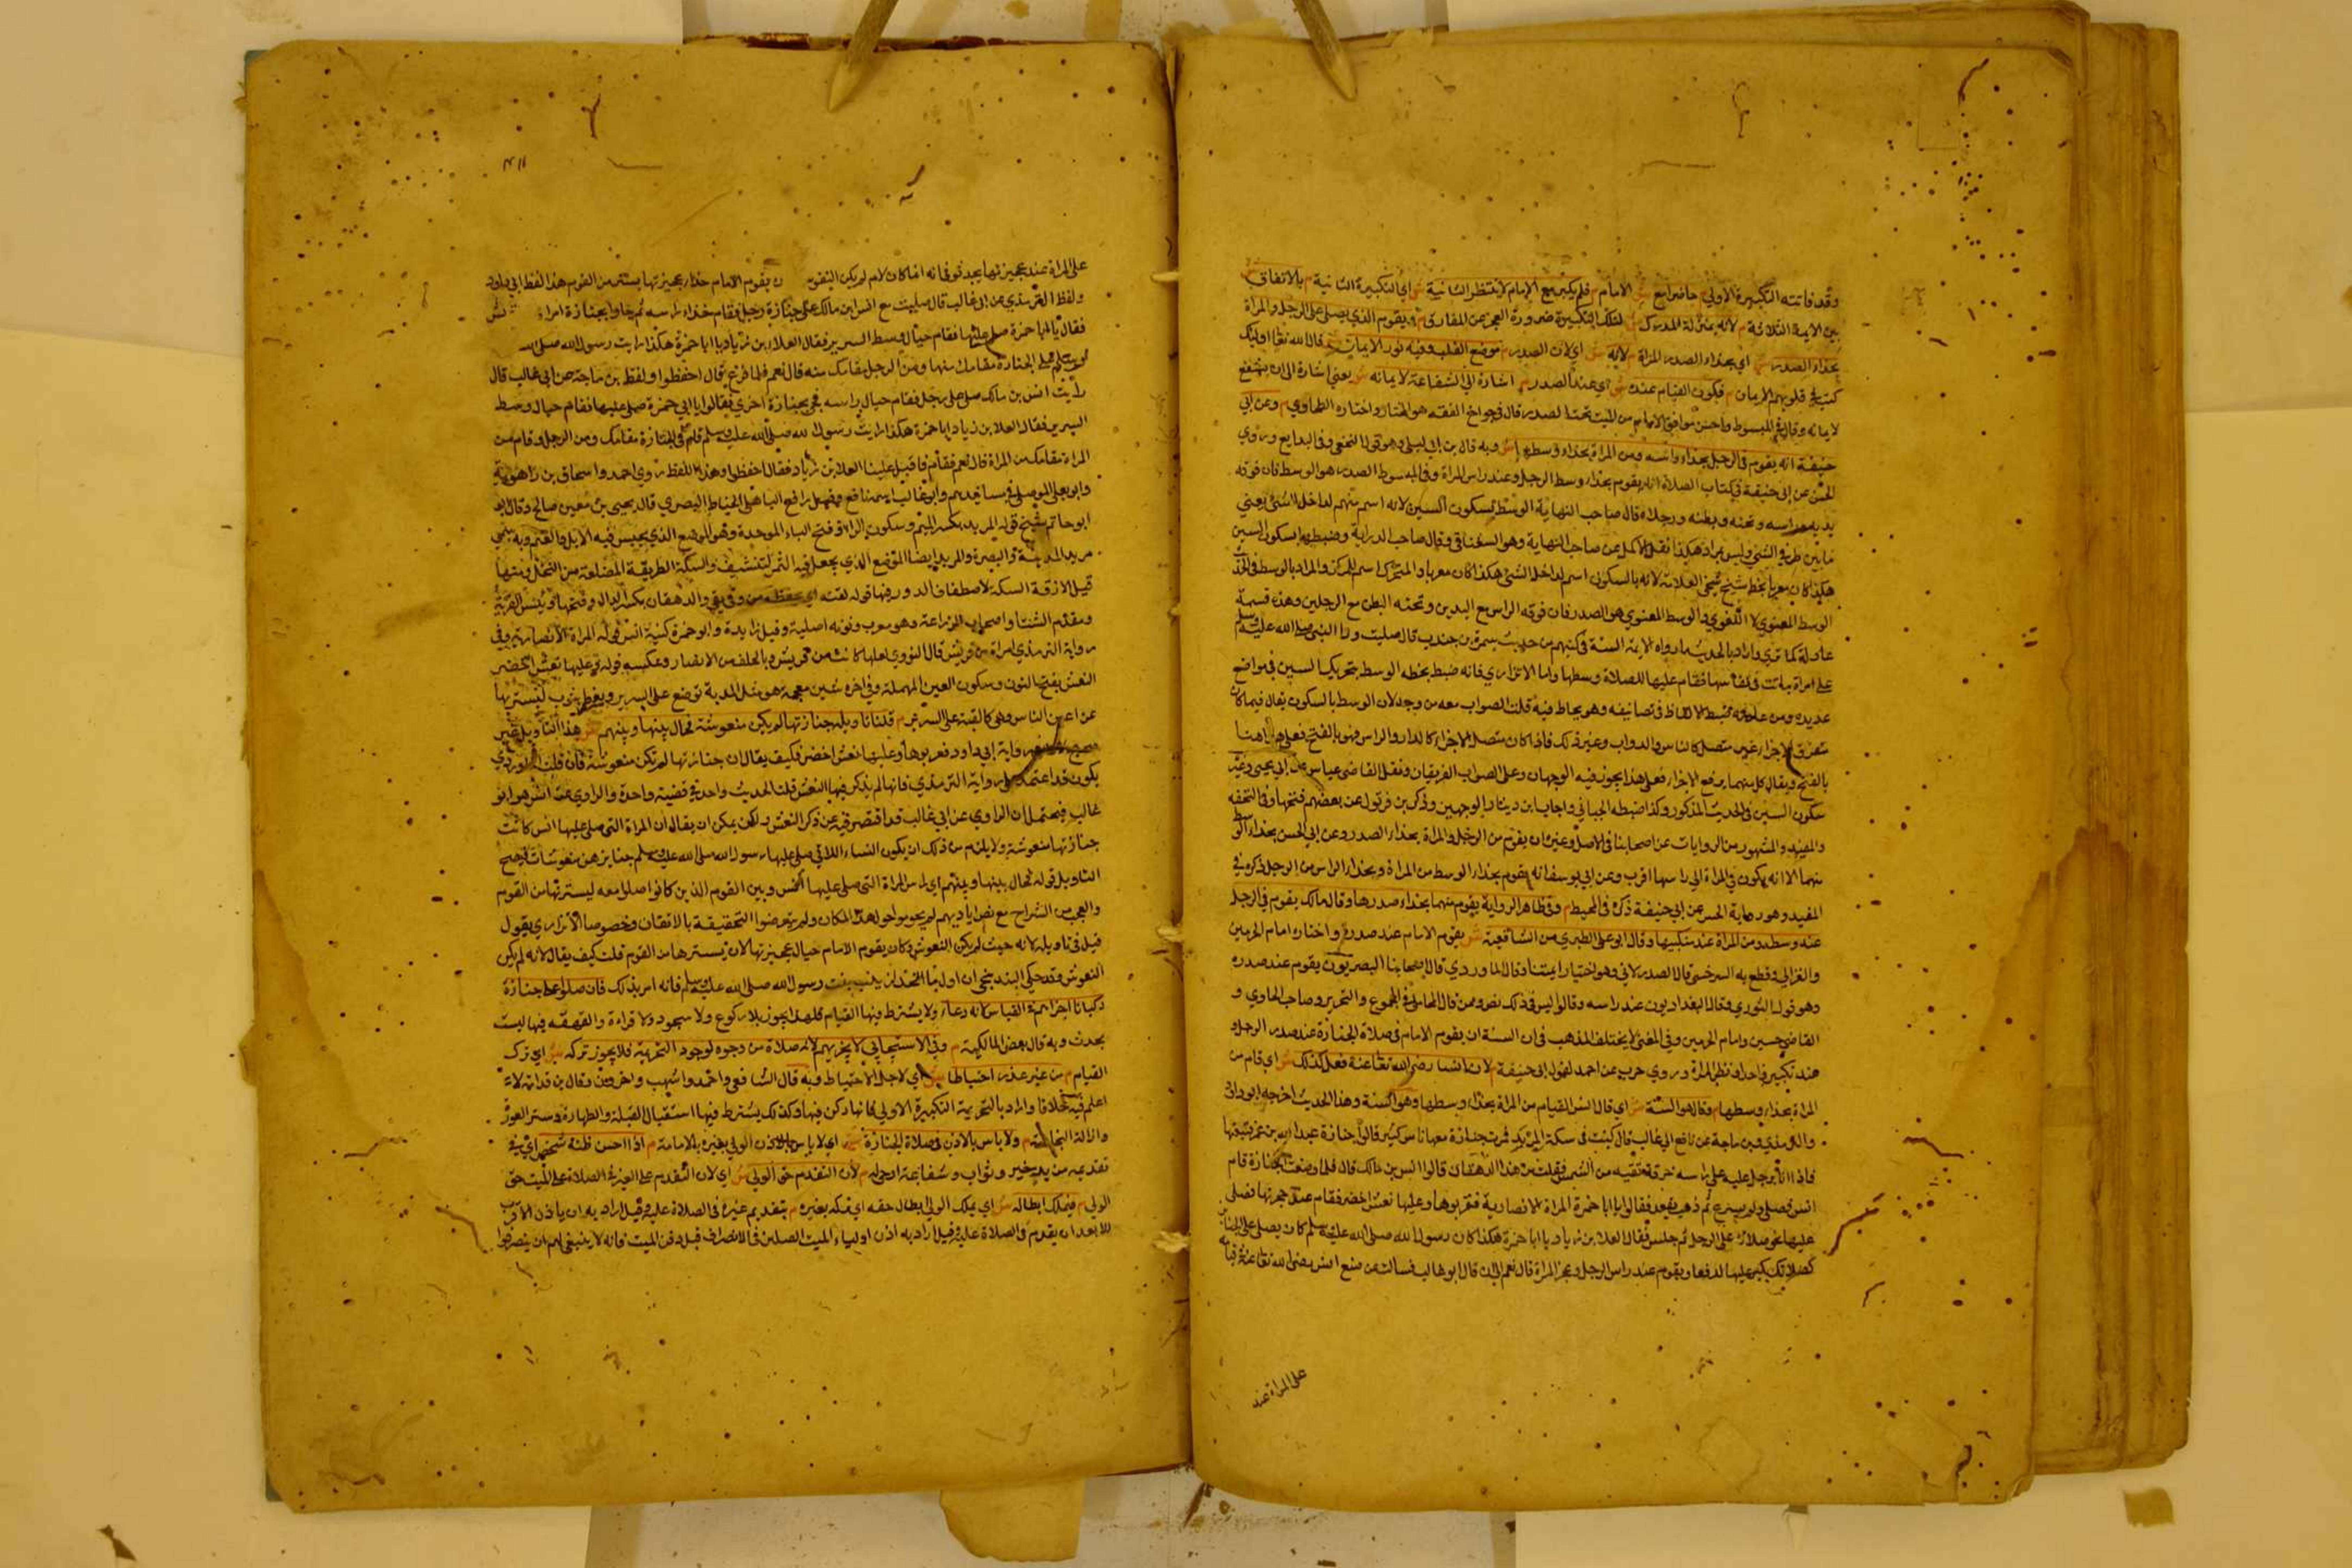 وقد فاتته التكبيرة الاولي حاضرا مع ش الامام م فلم يكبر مع الامام لا ينتظر الثانية ش اي التكبيرة الثانية م بالاتفاق ش
بين الايمة الثلاثة م لانه بمنزلة المدرك ش لتلك التكبيرة ضرورة العجز عن المقارنة م ويقوم الذي يصلي على الرجل والمراة
بحذاء الصدر ش اي بحذاء الصدر المراة م لانه ش اي لان الصدر م موضع القلب وفيه نور الايمان ش قال الله تعا اوليك
كتب في قلوبهم الايمان م فيكون القيام عنده ش اي عند الصدر م اشارة الي الشفاعة لايمانه ش يعني اشارة الي ان يشفع
لايمانه وقال في المبسوط واحسن مواقف الامام من الميت تحت الصدر قال في جوامع الفقه هو المختار واختاره الطحاوي م وعن ابي
حنيفة انه يقوم في الرجل بحذاء راسه ومن المراة بحذاء وسطها ش وبه قال بن ابي ليلى وهو قول النخعي وفي البدايع وروي
الحسن عن ابي حنيفة في كتاب الصلاة انه يقوم بحذاء وسط الرجل وعند راس المراة وفي المبسوط الصدر هو الوسط فان فوقه
يديه وراسه وتحته وبطنه ورجلاه قال صاحب النهاية الوسط بسكون السين لانه اسم مبهم لداخل الشئ يعني
ما بين طرفي الشئ وليس بمراد هكذا نقل الاكمل عن صاحب النهاية وهو السغناقي وقال صاحب الدراية وضبطه بسكون السين
هكذا كان معربا بخط شيخ شيخي العلامة لانه بالسكون اسم لداخل الشئ هكذا كان معربا والمتحرك اسم للمركز والمراد بالوسط في الحديث
الوسط المعنوي لا اللغوي والوسط المعنوي هو الصدر فان فوقه الراس مع اليدين وتحته البطن مع الرجلين وهذه قسمة
عادلة كما تري واراد بالحديث ما رواه الايمة الستة في كتبهم من حديث سمرة بن جندب قال صليت وراء النبي صلى الله عليه وسلم
على امراة ماتت في نفاسها فقام عليها للصلاة وسطها واما الاترازي فانه ضبط بخطه الوسط بتحريك السين في مواضع
عديده ومن عادته ضبط الالفاظ في تصانيفه وهو يحاط فيه قلت الصواب معه من وجه لان الوسط بالسكون يقال فيما كان
متفرق الاجزاء غير متصل كالناس والدواب وغير ذلك فاذا كان متصل الاجزاء كالدار والراس فهو بالفتح فعلى هذا هنا
بالفتح ويقال كل منهما يرفع الاجزاء فعلى هذا يجوز فيه الوجهان وعلى الصواب الفريقان ونقل القاضي عياض عن ابي يحيى وغيره
سكون السين في الحديث المذكور وكذا ضبطه الجياني واجاب ابن دينار بالوجهين وذكر بن قرقول عن بعضهم فتحها وفي التحفه
والمفيد والمشهور من الروايات عن اصحابنا في الاصل وغيره ان يقوم من الرجل والمراة بحذاء الصدر وعن ابي الحسن بحذاء الوسط
منهما الا انه يكون في المراة الى راسها اقرب وعن ابي يوسف انه يقوم بحذاء الوسط من المراة وبحذاء الراس من الرجل ذكره في
المفيد وهو رواية الحسن عن ابي حنيفة ذكره في المحيط م وفي ظاهر الرواية يقوم منهما بحذاء صدرها وقال مالك يقوم في الرجل
عند وسطه ومن المراة عند منكبيها وقال ابو علي الطبري من الشافعية ش يقوم الامام عند صدره واختاره امام الحرمين
والغزالي وقطع به السرخسي قال الصدلاني وهو اختيار ايمتنا وقال الماوردي قال اصحابنا البصريون يقوم عند صدره
وهو قول الثوري وقال البغداديون عند راسه وقالوا ليس في ذلك نص وممن قال المحاملي في المجموع والتجريد وصاحب الحاوي و
القاضي حسين وامام الحرمين وفي المغني لا يختلف المذهب في ان السنة ان يقوم الامام في صلاة الجنازة عند صدر الرجل و
المراة بحذاء وسطها م وقال هو السنة ش اي قال انس القيام من المراة بحذاء وسطها وهو السنة وهذا الحديث اخرجه ابو داود
والترمذي وبن ماجة عن نافع ابي غالب قال كنت في سكة المربد فمرت جنازة معها ناس كثير قالوا جنازة عبد الله بن عمر فتبعتها
فاذا انا برجل عليه على راسه خرقة تقيه من الشمس فقلت من هذا الدهقان قالوا انس بن مالك قال فلما وضعت الجنازة قام
انس فصلى ولم يسرع ثم ذهب يقعد فقالوا يا ابا حمزة المراة الانصارية فقربوها وعليها نعش اخضر فقام عند عجيزتها فصلى
عليها نحو صلاته على الرجل ثم جلس فقال العلا بن زياد يا ابا حمزة هكذا كان رسول الله صلى الله عليه وسلم كان يصلي على الجنازة
كصلاتك يكبر عليها اربعا ويقوم عند راس الرجل وعجز المراة قال نعم الى ان قال ابو غالب فسالت عن صنع انس رضي الله تعا عنه في قيامه
على المراة عند
على المراة عند عجيزتها فحدثوني انه انما كان لانه لم يكن النعوش ن يقوم الامام حذاء عجيزتها يستر من القوم هذا لفظ ابي داود
ولفظ الترمذي عن ابي غالب قال صليت مع انس ابن مالك على جنازة رجل فقام حذاء راسه ثم جاوا بجنازة امراة
فقال يا ابا حمزة صل عليها فقام حيال وسط السرير فقال العلاء بن زياد يا ابا حمزة هكذا رايت رسول الله صلى الله
عليه وسلم على الجنازة مقامك منها ومن الرجل مقامك منه قال نعم فلما فرغ قال احفظوا ولفظ بن ماجة عن ابي غالب قال
رايت انس بن مالك صلى على رجل فقام حيال راسه فجئ بجنازة اخري فقالوا يا ابي حمزة صل عليها فقام حيال وسط
السرير فقال العلا بن زياد يا ابا حمزة هكذا رايت رسول الله صلى الله عليه وسلم قام في الجنازة مقامك ومن الرجل وقام من
المراة مقامك من المراة قال نعم فقام فاقبل علينا العلا بن زياد فقال احفظوا وهذا اللفظ روي احمد واسحاق بن راهويه
وابو يعلى الموصلي في مسانيدهم وابو غالب اسمه نافع وقيل رافع الباهلي الخياط البصري قال يحيى بن معين صالح وقال
ابو حاتم شيخ قوله المربد بكسر الميم وسكون الراء وفتح الباء الموحدة وهو الموضع الذي يحبس فيه الابل والغنم وبه سمي
مربد المدينة والبصرة والمربد ايضا الموضع الذي يجعل فيه التمر لتنشيف والسكة الطريقة المصطفة من النخل ومنها
قيل الازقة السكة لاصطفاف الدور فيها قوله تقيه اي تحفظه من وقي يقي والدهقان بكسر الدال وفتحها رئيس القرية
ومقدم التناء واصحاب الزراعة وهو معرب ونونه اصلية وقيل زايدة وابو حمزة كنية انس قوله المراة الانصارية وفي
رواية الترمذي امراة من قريش قال النووي لعلها كانت من قريش وبالحلف من الانصار وعكسه قوله وعليها نعش اخضر
النعش بفتح النون وسكون العين المهملة وفي اخره شين معجمة هو مثل المدبة توضع على السرير ويغطى بثوب ليسترها
عن اعين الناس وهي كالقبة على السرير م قلنا تاويله جنازتها لم يكن منعوشة فحال بينها وبينهم ش هذا التاويل غير
رواية ابي داود فقربوها وعليها نعش اخضر فكيف يقال ان جنازتها لم تكن منعوشة فان قلت
يكون قد اعتمد على رواية الترمذي فانها لم يذكر فيها النعش قلت الحديث واحد في قضية واحدة والراوي عن انس هو ابو
غالب فيحتمل ان الراوي عن ابي غالب قد اقتصر فيه عن ذكر النعش ولكن يمكن ان يقال ان المراة التي صلى عليها انس كانت
جنازتها منعوشة ولا يلزم من ذلك ان يكون النساء اللاتي صلى عليها رسول الله صلى الله عليه وسلم جنايزهن منعوشات فيصح
التاويل قوله فحال بينها وبينهم اي راس المراة التي صلى عليها انس وبين القوم الذين كانوا صلوا معه ليسترها من القوم
والعجب من الشراح مع نص اياديهم لم يحوموا حول هذا المكان ولم يتعرضوا التحقيقة بالاتقان وخصوصا الاترازي يقول
قيل في تاويله لانه حيث لم يكن النعوش وكان يقوم الامام حيال عجيزتها لان يسترها من القوم قلت كيف يقال لانه لم يكن
النعوش وقد حكي البندنيجي ان اول ما اتخذ لزينب بنت رسول الله صلى الله عليه وسلم فانه امر بذلك فان صلوا على جنازة
ركبانا اجزاهم في القياس لانه دعاء ولا يشترط فيها القيام فلهذا يجوز بلا ركوع ولا سجود ولا قراءة والقهقه فيها ليست
بحدث وبه قال بعض المالكية م وفي الاستحسان لا يجزيهم لانه صلاة من وجوه لوجود التحريمة فلا يجوز تركه ش اي ترك
القيام م من غير عذر احتياطا ش اي لاجل الاحتياط وبه قال الشافعي واحمد واشهب واخرون وقال بن قدامة لا
اعلم فيه خلافا والمراد بالتحريمة التكبيرة الاولى كانها ركن فيها وكذلك يشترط فيها استقبال القبلة والطهارة وستر العورة
وازالة النجاسة م ولا باس بالاذن في صلاة الجنازة ش اي لا باس بالاذن الولي بغيره بالامامة م اذا احسن ظنه شخص اي في
تقديمه مزيد خير وثواب وشفاعة ارجى له م لان التقدم حق الولي ش اي لان التقدم على الغير في الصلاة على الميت حق
الولي م فيملك ابطاله ش اي يملك الولي ابطال حقه اي تمكه بغيره م بتقديم غيره في الصلاة عليه وقيل اراد به ان ياذن الاقرب
للابعد ان يقدم في الصلاة عليه وقيل اراد به اذن اولياء الميت المصلين في الانصراف قبل دفن الميت فانه لا ينبغي لهم ان ينصرفوا